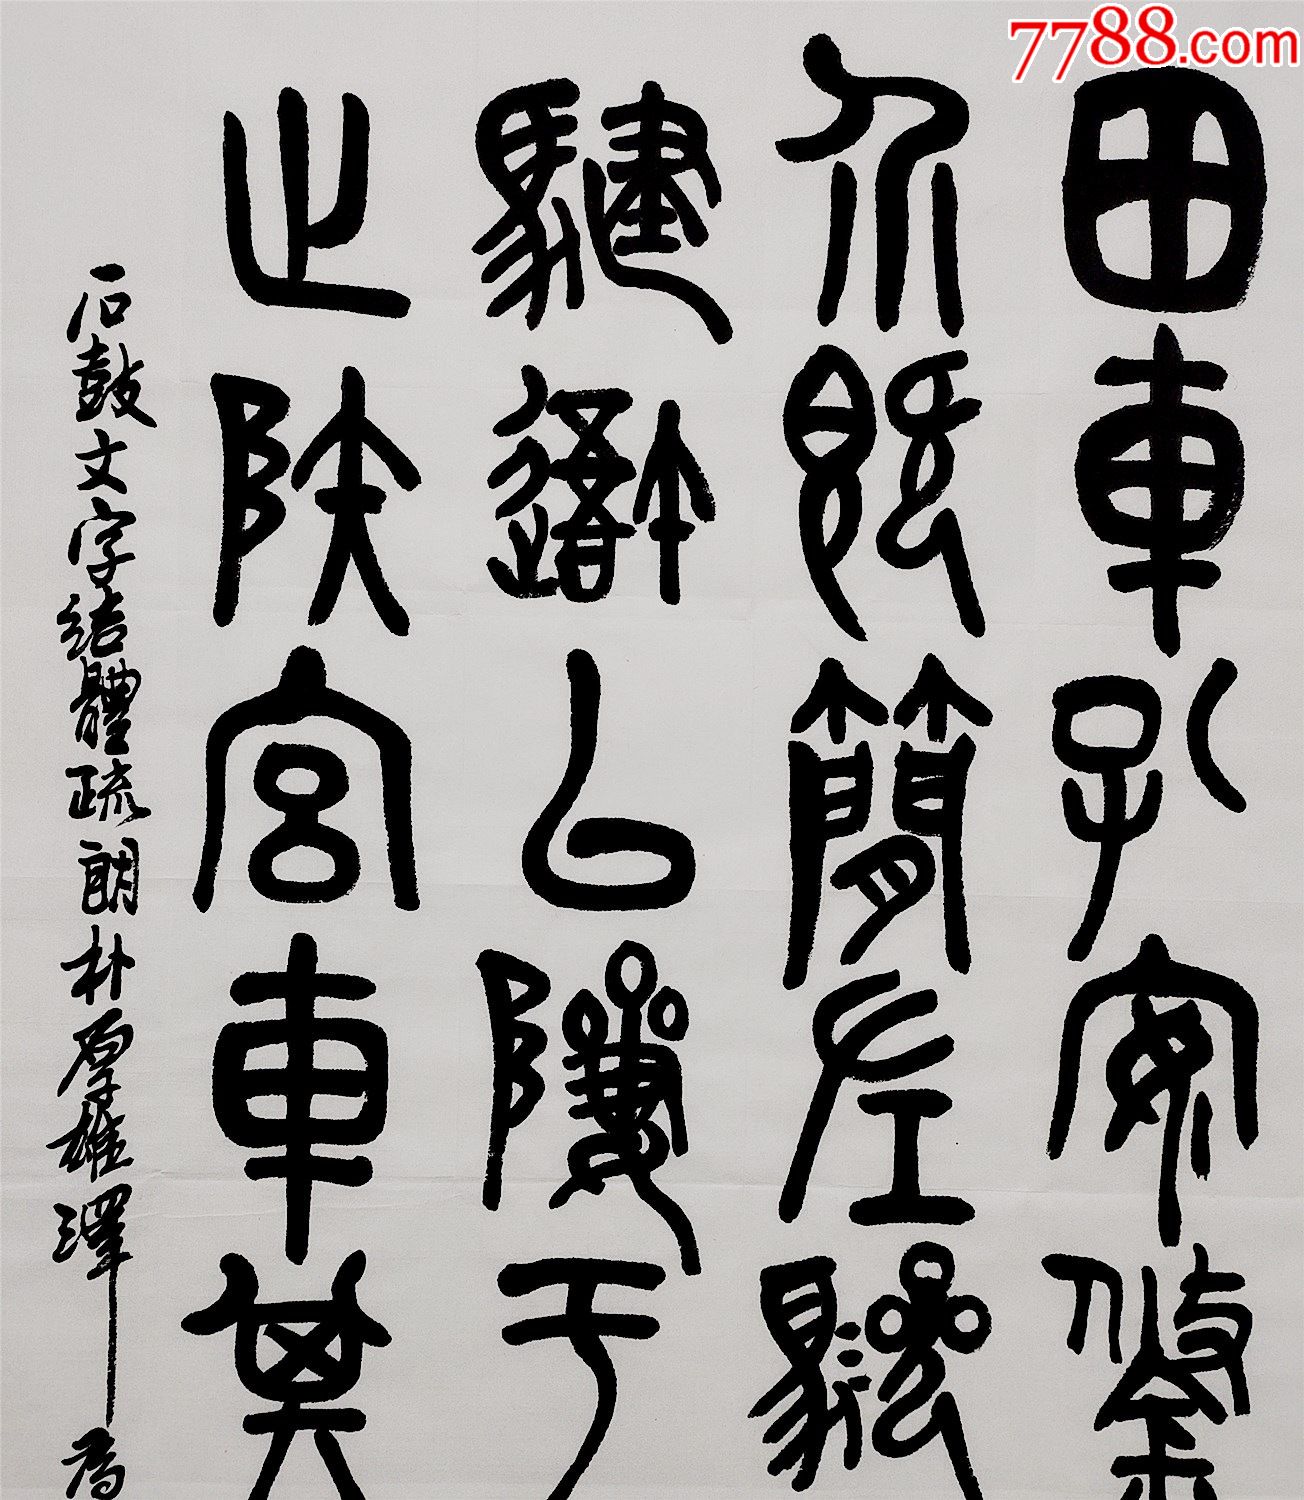 7788.com
田車孔安鋚
介既簡左驂
騝以隮于
止陕宮車其
石鼓文字結體疏朗朴厚雄渾為